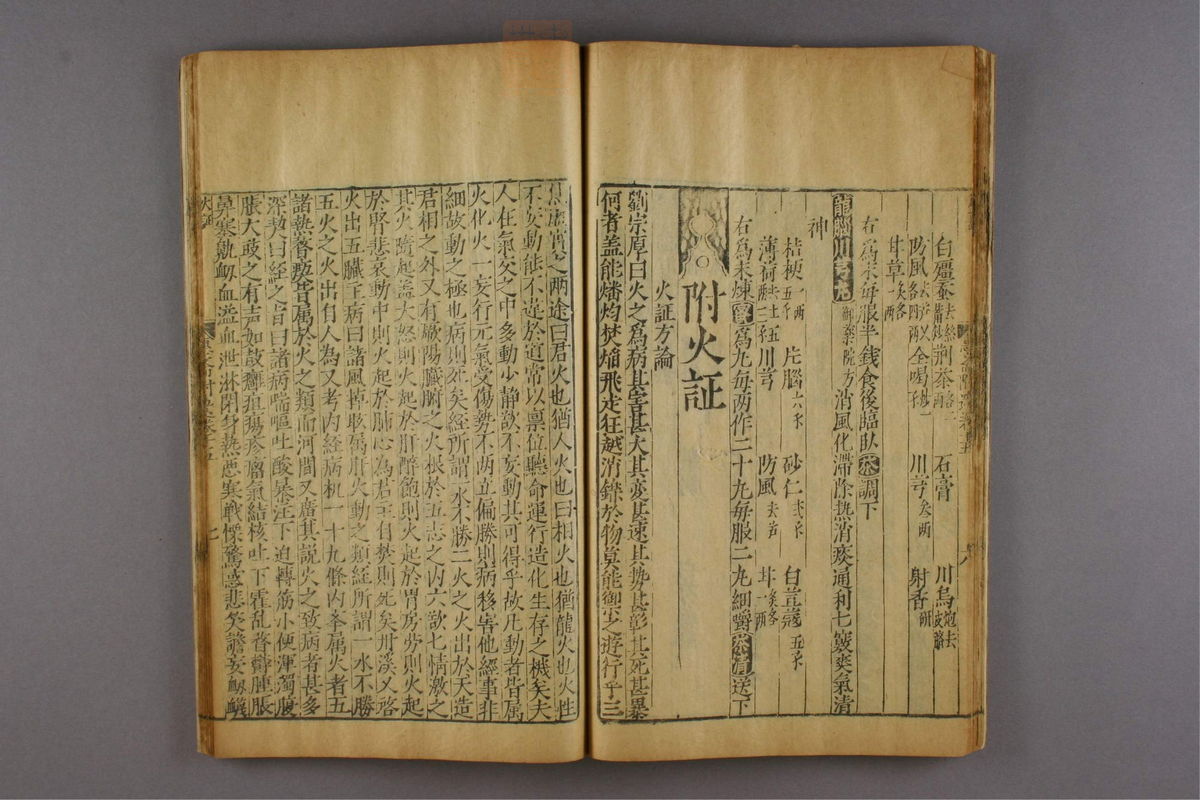 白殭蚕 荊芥 石膏 川烏
防風 全蝎 川芎 射香
甘草
右為末每服半錢食後臨臥茶調下
龍腦川芎丸 御藥院方 消風化滯除熱消痰通利七竅爽氣清
神
桔梗 片腦 砂仁 白荳蔻
薄荷 川芎 防風
右為末煉蜜為丸每两作二十丸每服二丸細嚼茶清送下
附火証
火証方論
劉宗厚曰火之為病其害甚大其變甚速其势甚彰其死甚暴
何者盖能燔灼焚焰飛走狂越消鑠於物莫能禦之遊行乎三
焦虛實之两途曰君火也猶人火也曰相火也猶龍火也火性
不妄動能不違於道常以禀位聽命運行造化生存之機矣夫
人在氣交之中多動少静欲不妄動其可得乎故凡動者皆属
火化火一妄行元氣受傷勢不两立偏勝則病移害他經事非
細故動之極也病則死矣經所謂一水不勝二火之火出於天造
君相之外又有厥陽臟腑之火根於五志之内六欲七情激之
其火隨起盖大怒則火起於肝醉飽則火起於胃房劳則火起
於腎悲哀動中則火起於肺心為君主自焚則死矣丹溪又啓
火出五臟主病曰諸風掉眩属肝火動之類經所謂一水不勝
五火之火出自人為又考内經病机一十九條内举属火者五
諸熱瞀瘈皆属於火之類而河間又廣其說火之致病者甚多
深契曰經之旨曰諸病喘嘔吐酸暴注下迫轉筋小便渾濁腹
脹大鼓之有声如鼓癰疽瘍疹瘤氣結核吐下霍乱瞀鬱腫脹
鼻窒鼽衂血溢血泄淋閉身熱悪寒戰慄驚惑悲笑譫妄衂衊
火証
七
八